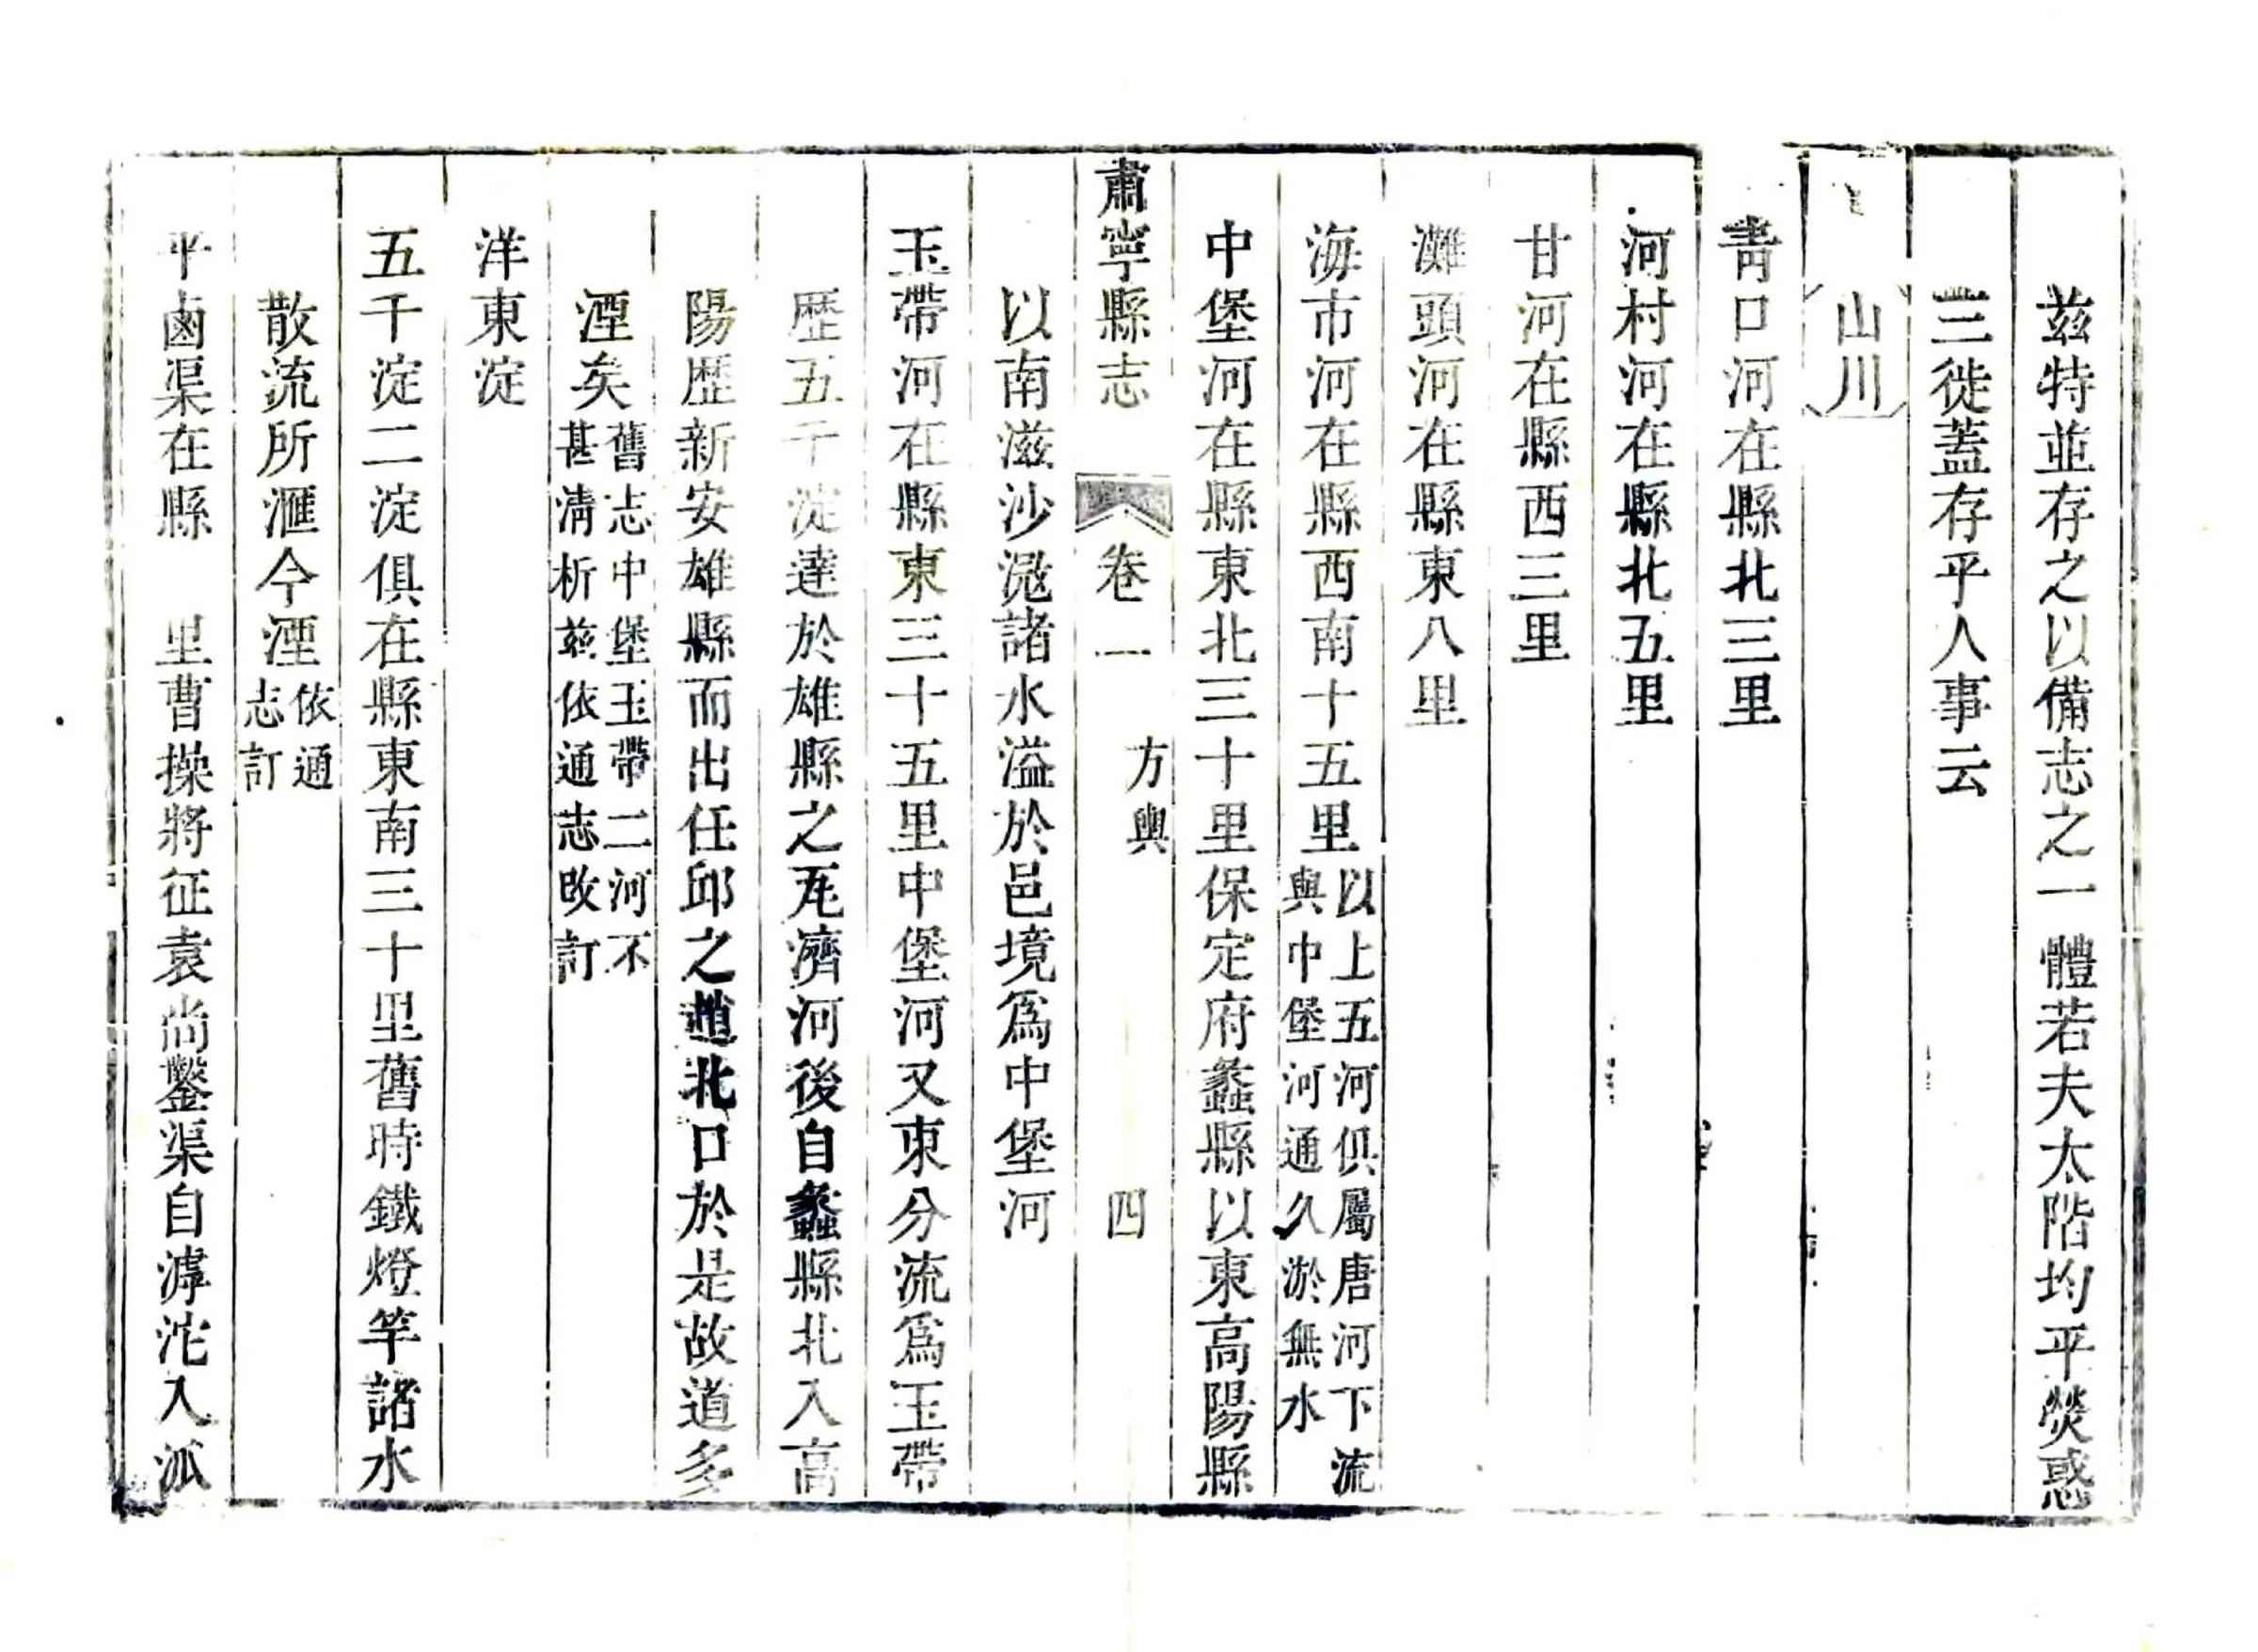 茲特並存之以備志之一體若夫太階均平熒惑
三徙蓋存乎人事云
山川
青口河在縣北三里
河村河在縣北五里
甘河在縣西三里
灘頭河在縣東八里
海市河在縣西南十五里以上五河俱屬唐河下流與中堡河通久淤無水
中堡河在縣東北三十里保定府蠡縣以東高陽縣
以南滋沙滱諸水溢於邑境爲中堡河
肅寧縣志 卷一 方輿 四
玉帶河在縣東三十五里中堡河又東分流爲玉帶
歷五千淀達於雄縣之瓦濟河後自蠡縣北入高
陽歷新安雄縣而出任邱之趙北口於是故道多
湮矣舊志中堡玉帶二河不甚淸析茲依通志改訂
洋東淀
五千淀二淀俱在縣東南三十里舊時鐵燈竿諸水
散流所滙今湮依通志訂
平鹵渠在縣 里曹操將征袁尚鑿渠自滹沱入泒